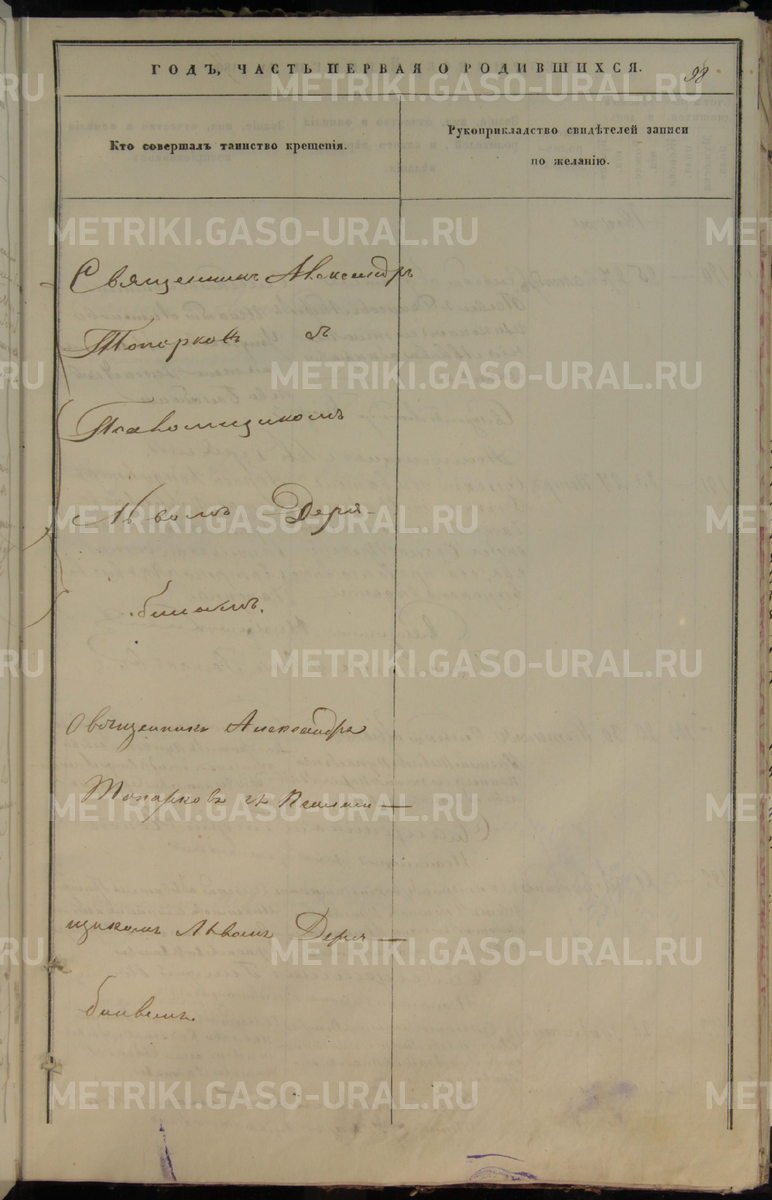 ГОДЪ, ЧАСТЬ ПЕРВАЯ О РОДИВШИХСЯ.
98
Кто совершалъ таинство крещенія.
Рукоприкладство свидѣтелей записи
по желанію.
METRIKI.GASO-URAL.RU
Священникъ Александръ
Топорковъ съ
Псаломщикомъ
Львомъ Деря-
бинымъ.
Священникъ Александръ
Топорковъ съ Псалом-
щикомъ Львомъ Деря-
бинымъ.